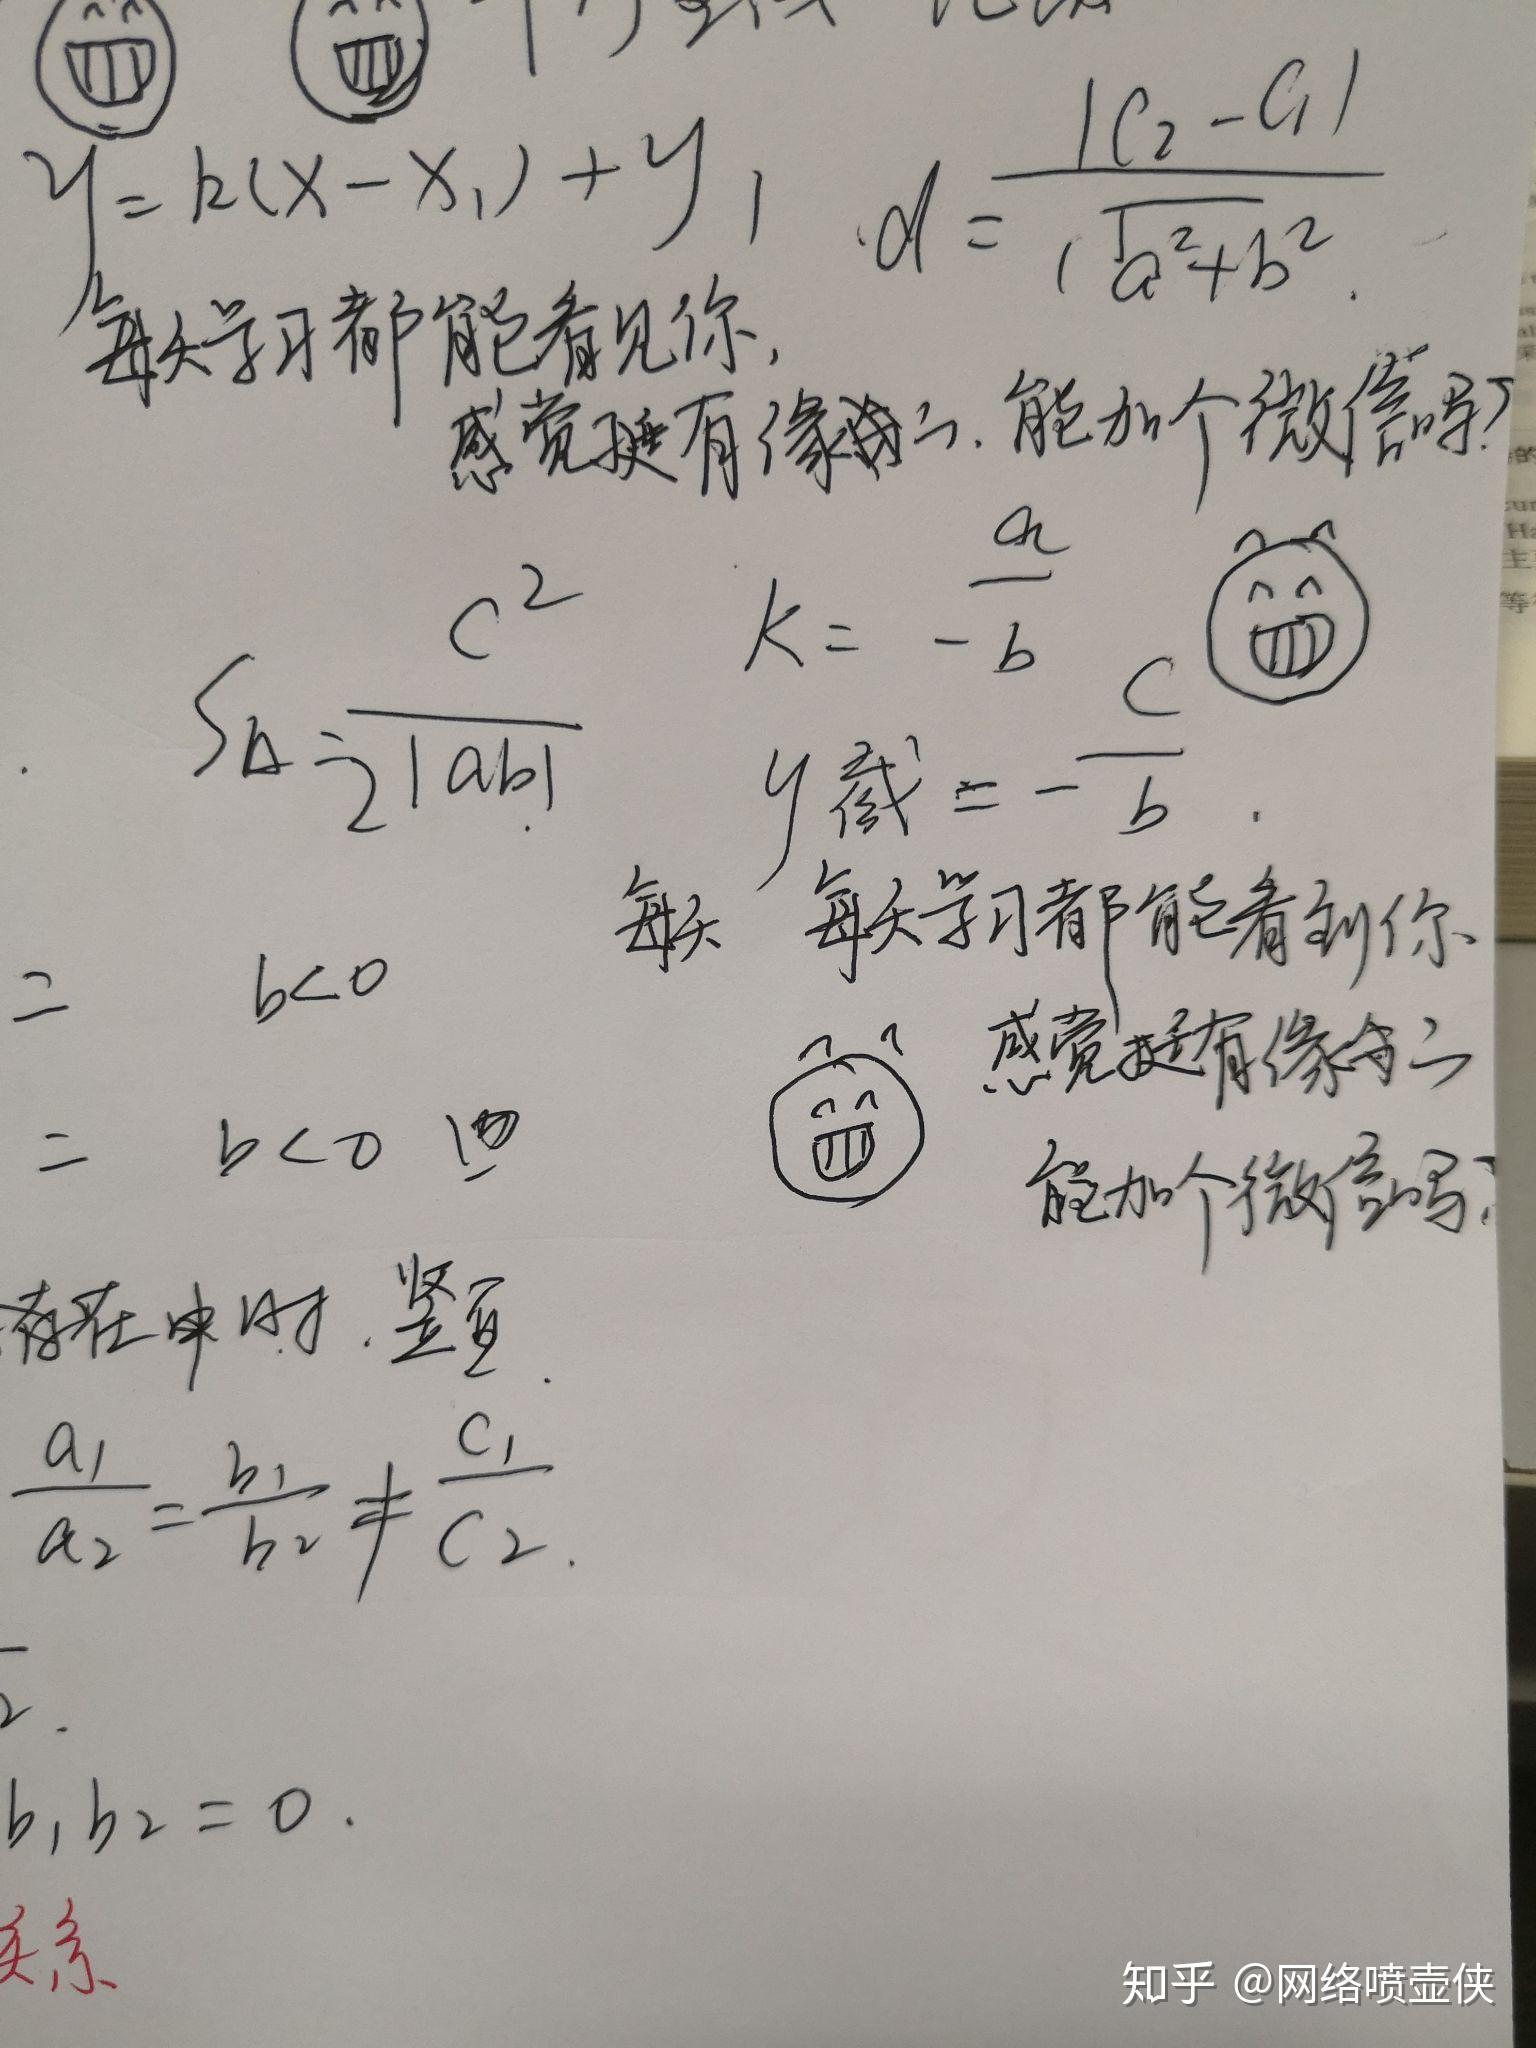 y=k(x-x₁)+y₁ d=|C₂-C₁|/√a²+b².
每天学习都能看见你,
感觉挺有缘分. 能加个微信吗?
S△=c²/2|ab| k=-a/b
y截=-c/b.
= b<0 每天 每天学习都能看到你、
感觉挺有缘分
= b<0 能加个微信吗?
存在 时. 竖直.
a₁/a₂=b₁/b₂≠c₁/c₂.
2.
b₁b₂=0.
关系
知乎 @网络喷壶侠